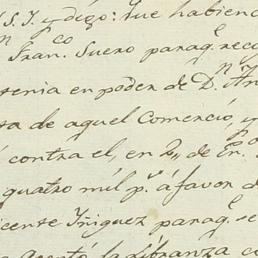 S. S. y digo: que habien
n Fran.co Suero paraq.e reco
tenia en poder de D.n An
sa de aquel Comercio, y
contra el, en 2,, de En.o
quatro mil p.s á favor d
icente Yñiguez paraq.e se
la Libranza